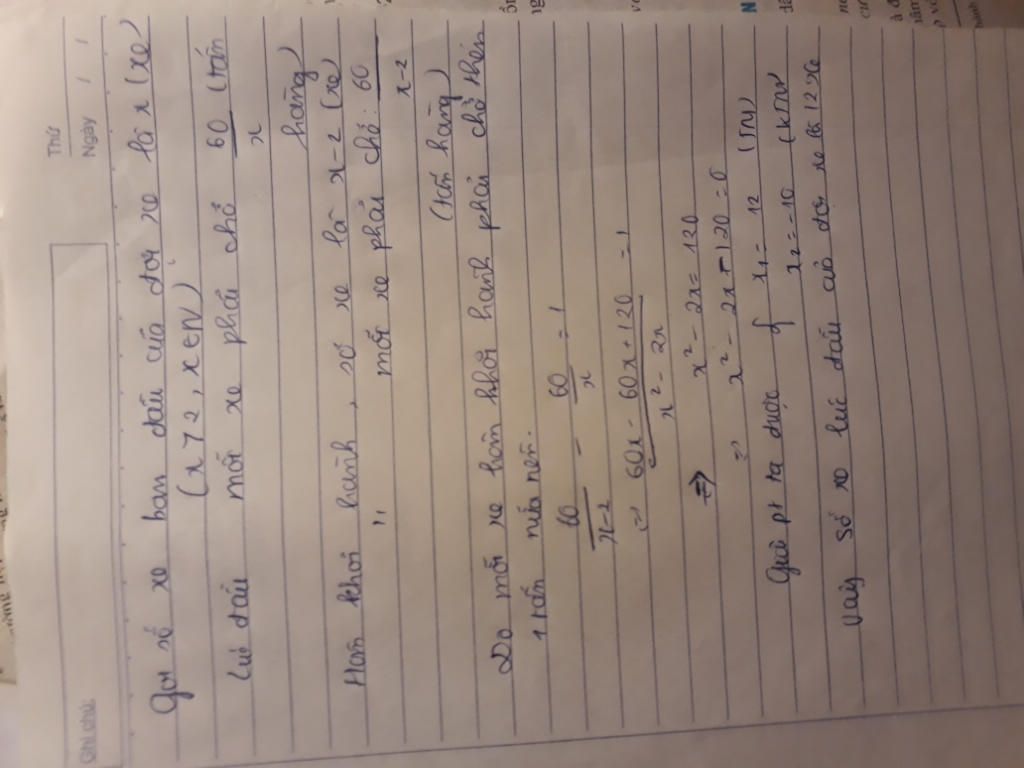 Thứ
Ngày / /
Ghi chú:
Gọi số xe ban đầu của đội xe là x (xe)
(x > 2, x ∈ N)
Lúc đầu mỗi xe phải chở 60/x (tấn
hàng)
Hôm khởi hành, số xe là x-2 (xe)
" mỗi xe phải chở: 60/x-2
(tấn hàng)
Do mỗi xe hôm khởi hành phải chở thêm
1 tấn nữa nên.
60/x-2 - 60/x = 1
60x - 60x + 120/x² - 2x = 1
=> x² - 2x = 120
x² - 2x - 120 = 0
Giải pt ta được { x₁ = 12 (TM)
x₂ = -10 (KTM)
Vậy số xe lúc đầu của đội xe là 12 xe
N